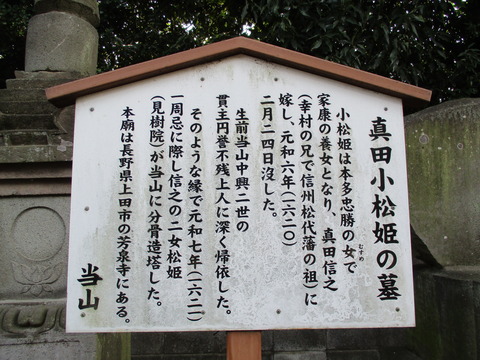 真田小松姫の墓
小松姫は本多忠勝の女で
むすめ
家康の養女となり、真田信之
(幸村の兄で信州松代藩の祖)に
嫁し、元和六年(一六二〇)
二月二四日没した。
生前当山中興二世の
貫主円誉不残上人に深く帰依した。
そのような縁で元和七年(一六二一)
一周忌に際し信之の二女松姫
(見樹院)が当山に分骨造塔した。
本廟は長野県上田市の芳泉寺にある。
当山